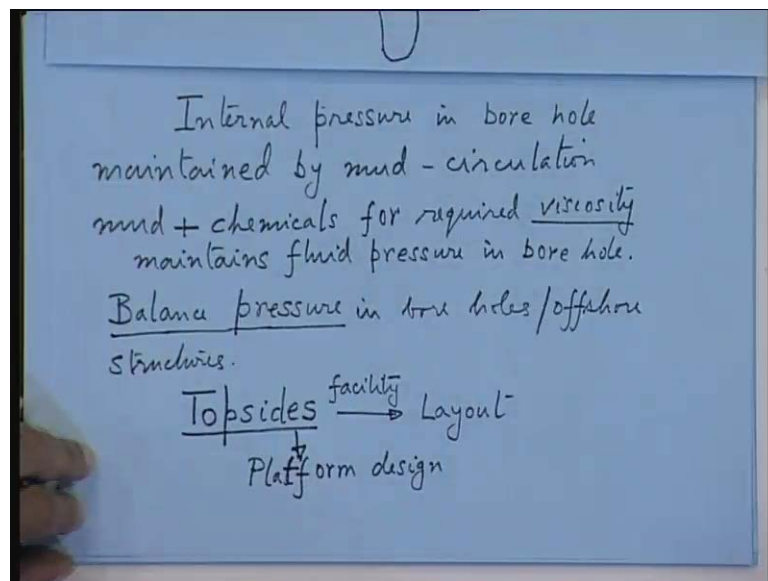 Internal pressure in bore hole
maintained by mud - circulation
mud + chemicals for required viscosity
maintains fluid pressure in bore hole.
Balance pressure in bore holes/offshore
structures.
Topsides facility → Layout
Platform design